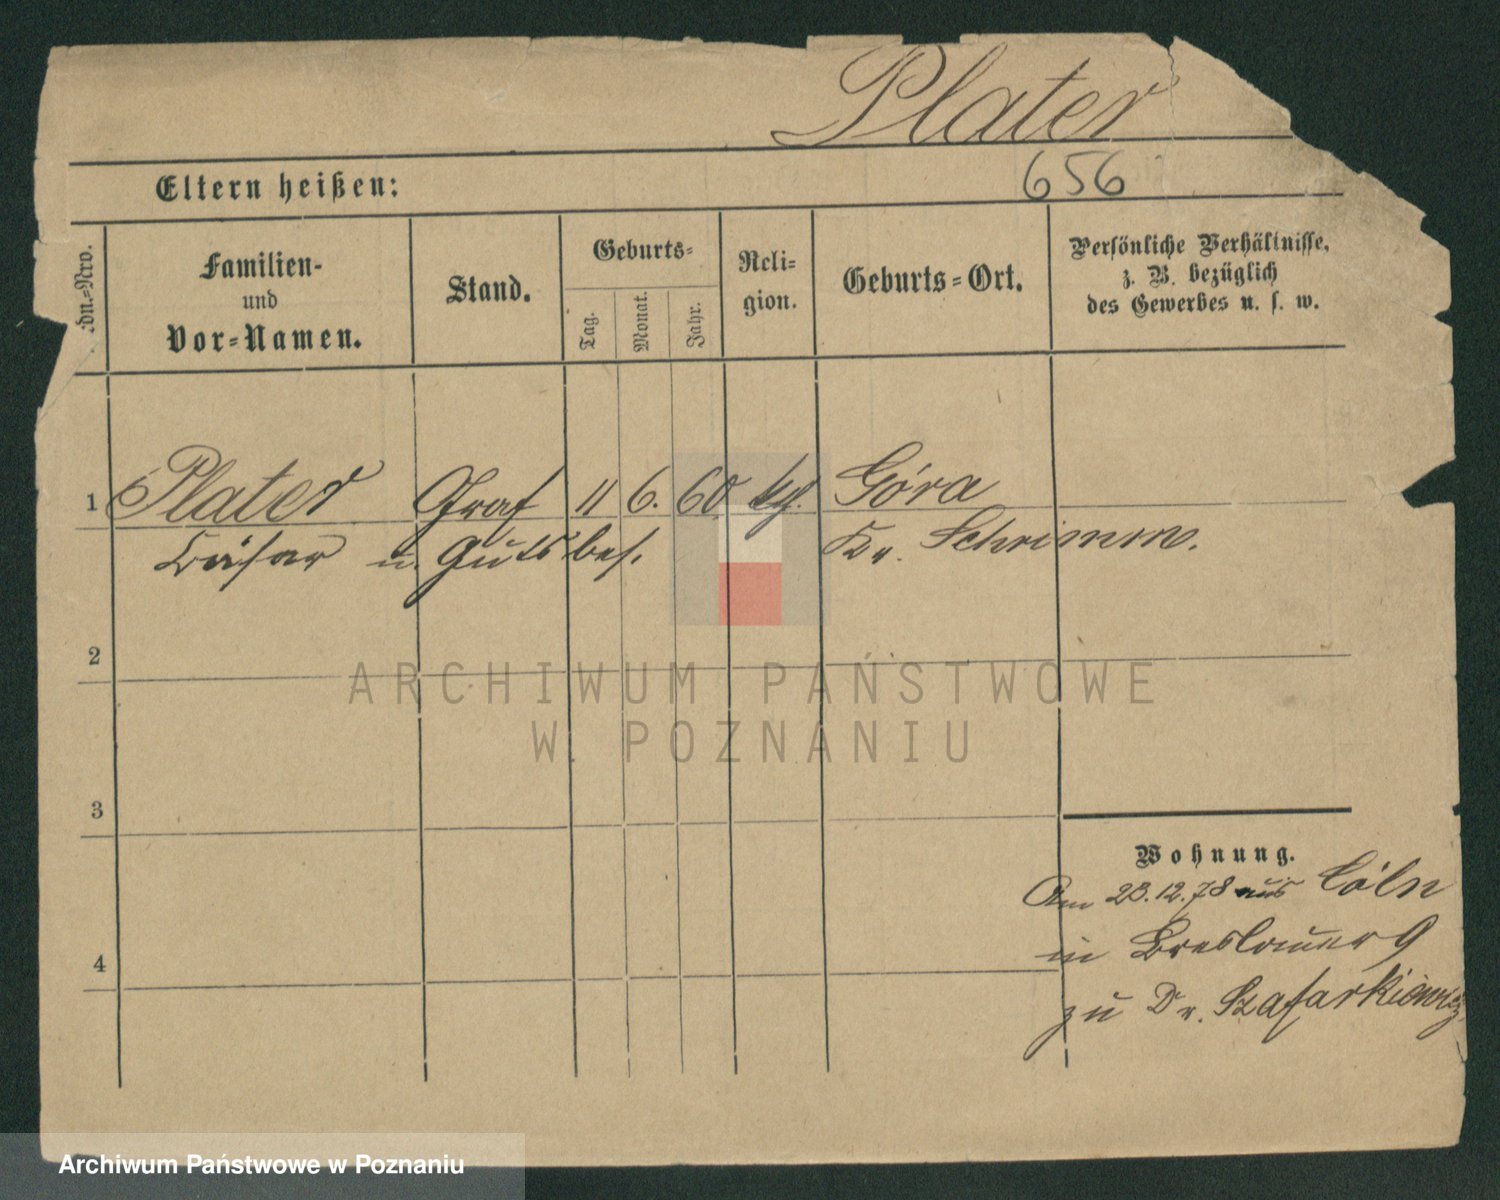 Plater
656
Eltern heißen:
dn.-Nro.
Familien-
und
Vor-Namen.
Stand.
Geburts-
Tag.
Monat.
Jahr.
Reli-
gion.
Geburts-Ort.
Persönliche Verhältnisse,
z. B. bezüglich
des Gewerbes u. s. w.
1 Plater Graf 11 6. 60 Góra
Cäsar u. Gutsbes. Kr. Schrimm.
2
3
4
Wohnung.
Am 23.12.78 aus Cöln
in Breslauer 9
zu Dr. Szafarkiewicz
ARCHIWUM PAŃSTWOWE
W POZNANIU
Archiwum Państwowe w Poznaniu